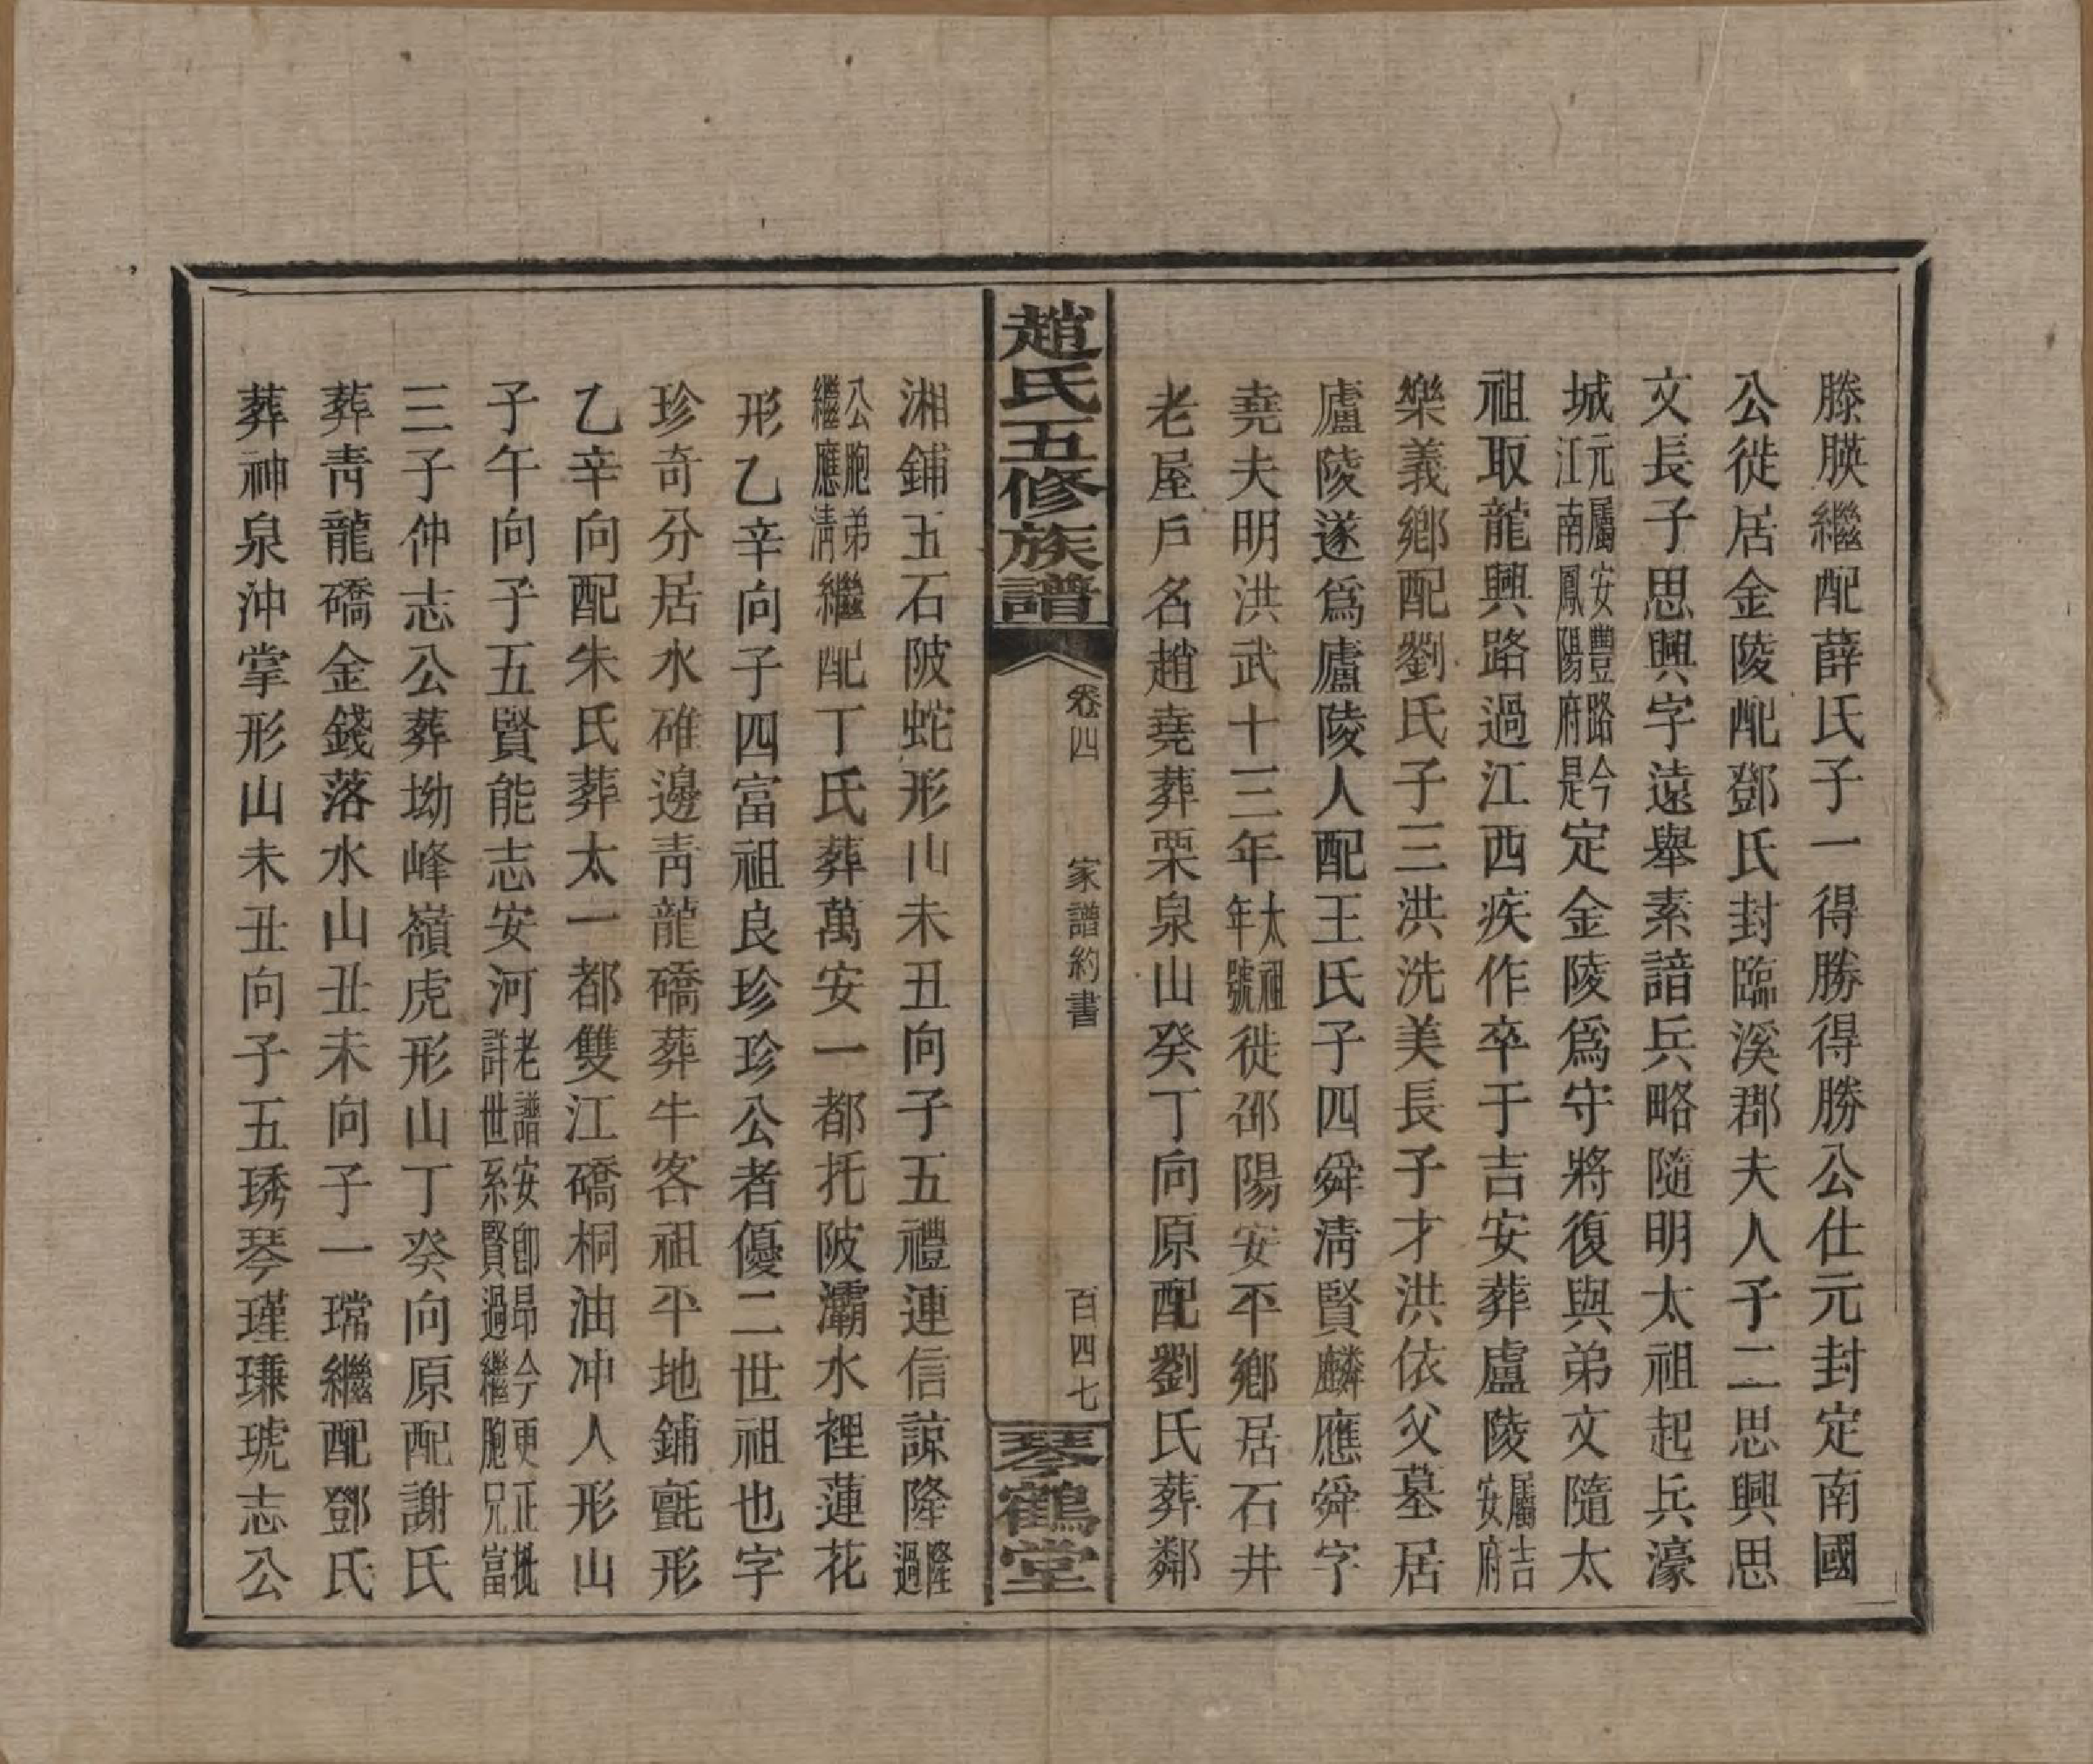 滕膜繼配薛氏子一得勝得勝公仕元封定南國
公徙居金陵配鄧氏封臨溪郡夫人子二思興思
文長子思興字遠舉素諳兵略隨明太祖起兵濠
城元屬安豐路今江南鳳陽府是定金陵爲守將復與弟文隨太
祖取龍興路過江西疾作卒于吉安葬盧陵屬吉安府
樂義鄉配劉氏子三洪洗美長子才洪依父墓居
廬陵遂爲廬陵人配王氏子四舜清賢麟應舜字
堯夫明洪武十三年太祖年號徙邵陽安平鄉居石井
老屋戶名趙堯葬栗泉山癸丁向原配劉氏葬鄰
趙氏五修族譜
卷四
家譜約書
百四七
琴鶴堂
湘鋪五石陂蛇形山未丑向子五禮連信諒隆隆過
公胞弟繼應清繼配丁氏葬萬安一都托陂灞水裡蓮花
形乙辛向子四富祖良珍珍公者優二世祖也字
珍奇分居水碓邊青龍礄葬牛客祖平地鋪氈形
乙辛向配朱氏葬太一都雙江礄桐油冲人形山
子午向子五賢能志安河老譜安卽昂今更正批詳世系賢過繼胞兄富
三子仲志公葬坳峰嶺虎形山丁癸向原配謝氏
葬青龍礄金錢落水山丑未向子一瑺繼配鄧氏
葬神泉沖掌形山未丑向子五琇琴瑾璉琥志公